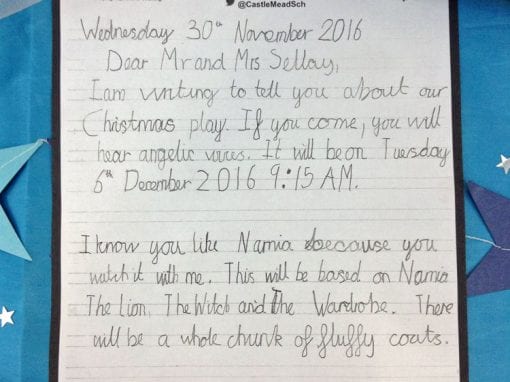 @CastleMeadSch
Wednesday 30th November 2016
Dear Mr and Mrs Sellay,
I am writing to tell you about our
Christmas play. If you come, you will
hear angelic voices. It will be on Tuesday
6th December 2016 9:15 AM.
I know you like Narnia because you
watch it with me. This will be based on Narnia
The Lion, The Witch and The Wardrobe. There
will be a whole chunk of fluffy coats.